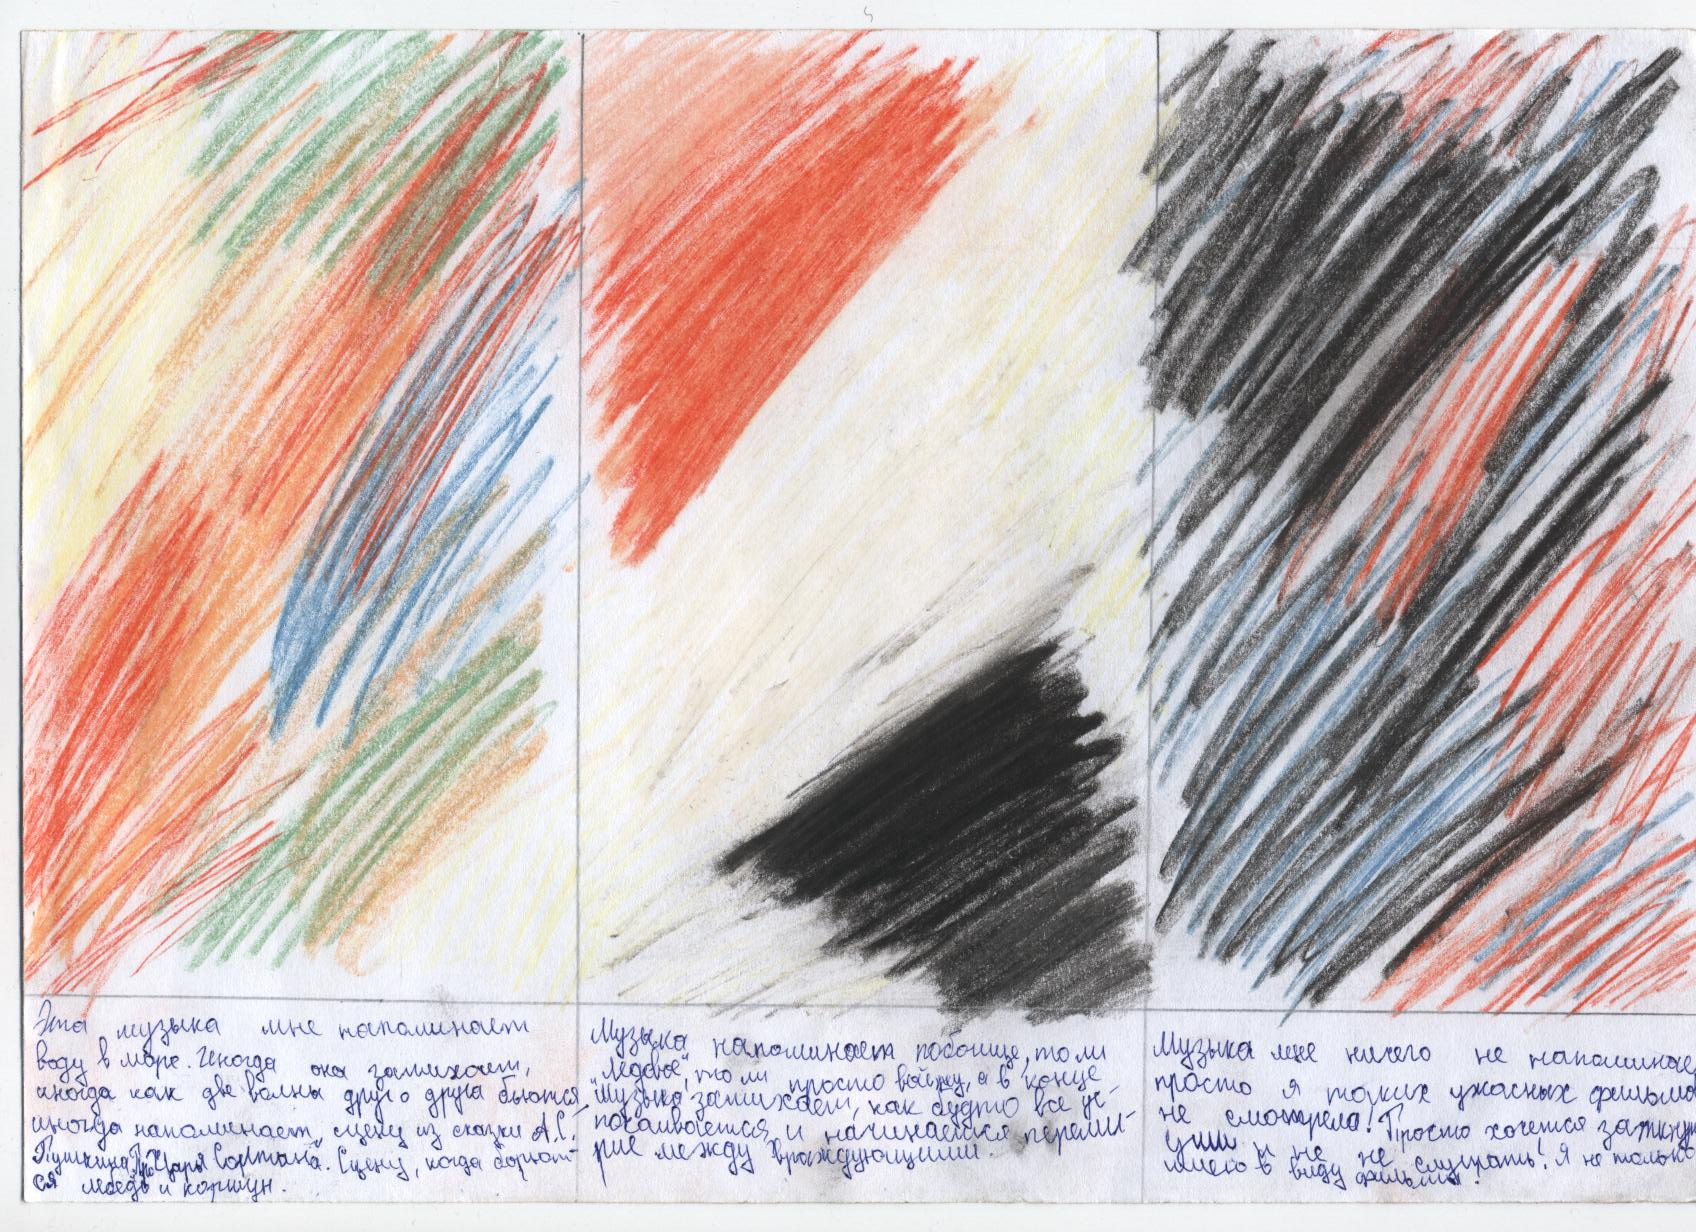 Эта музыка мне напоминает
воду в море. Иногда она затихает,
иногда как две волны друг о друга бьются
иногда напоминает сцену из сказки А.С.
Пушкина "Про Царя Солтана". Сцену, когда борют-
ся лебедь и коршун.
Музыка напоминает побоище, то ли
"Ледовое", то ли просто войну, а в конце
музыка затихает, как будто все ус-
покаивается, и начинается переми-
рие между враждующими.
Музыка мне ничего не напоминает
просто я таких ужасных фильмов
не смотрела! Просто хочется заткнуть
уши и не слушать! Я не только
имею в виду фильмы!